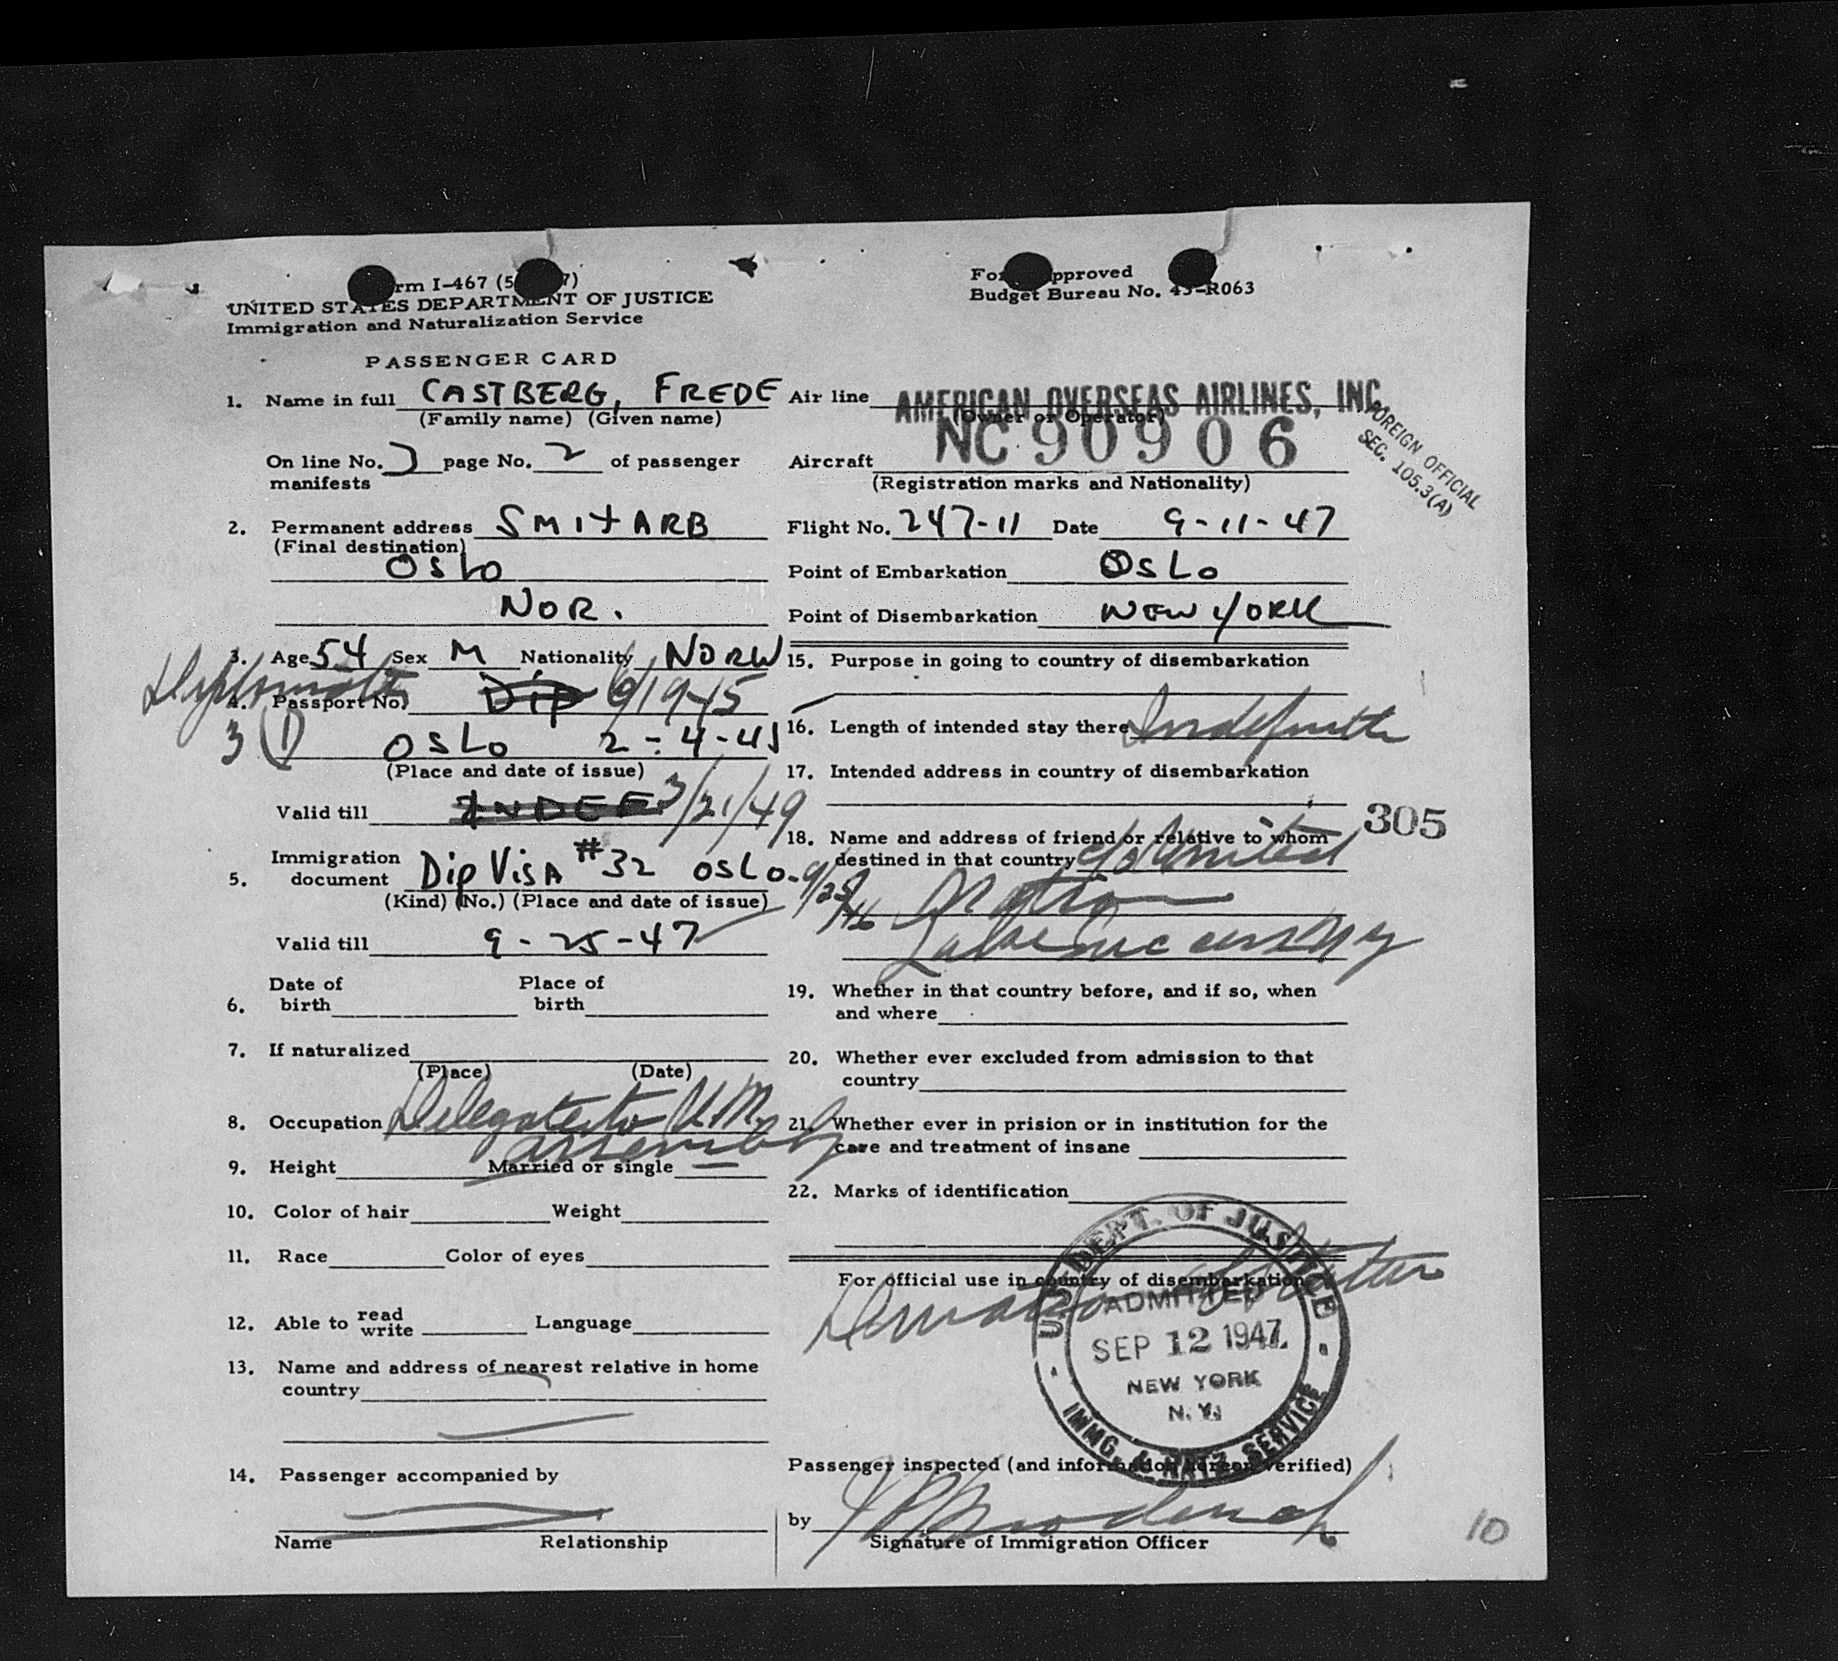 rm I-467 (5 7)
UNITED STATES DEPARTMENT OF JUSTICE
Immigration and Naturalization Service
PASSENGER CARD
For pproved
Budget Bureau No. 43-R063
1. Name in full CASTBERG, FREDE
(Family name) (Given name)
On line No. page No. 2 of passenger
manifests
2. Permanent address SMITARB
(Final destination)
OSLO
NOR.
3. Age 54 Sex M Nationality NORW
Diplomatic
4. Passport No. Dip
3 (1) OSLO 2-4-45
(Place and date of issue)
Valid till INDEF 3/21/49
5. Immigration
document Dip VISA #32 OSLO - 9/25/46
(Kind) (No.) (Place and date of issue)
Valid till 9-25-47
6. Date of
birth Place of
birth
7. If naturalized
(Place) (Date)
8. Occupation Delegate to U.N.
assembly
9. Height Married or single
10. Color of hair Weight
11. Race Color of eyes
12. Able to read
write Language
13. Name and address of nearest relative in home
country
14. Passenger accompanied by
Name Relationship
Air line AMERICAN OVERSEAS AIRLINES, INC.
(Owner or Operator)
Aircraft NC 90906
(Registration marks and Nationality)
FOREIGN OFFICIAL
SEC. 105.3(A)
Flight No. 247-11 Date 9-11-47
Point of Embarkation OSLO
Point of Disembarkation NEW YORK
15. Purpose in going to country of disembarkation
16. Length of intended stay there Indefinite
17. Intended address in country of disembarkation
305
18. Name and address of friend or relative to whom
destined in that country c/o United
Nations
Lake Success NY
19. Whether in that country before, and if so, when
and where
20. Whether ever excluded from admission to that
country
21. Whether ever in prision or in institution for the
care and treatment of insane
22. Marks of identification
For official use in country of disembarkation
Duration of Status
U.S. DEPT. OF JUSTICE
ADMITTED
SEP 12 1947
NEW YORK
N.Y.
IMMG. & NATZ. SERVICE
Passenger inspected (and information hereon verified)
by
Signature of Immigration Officer
10